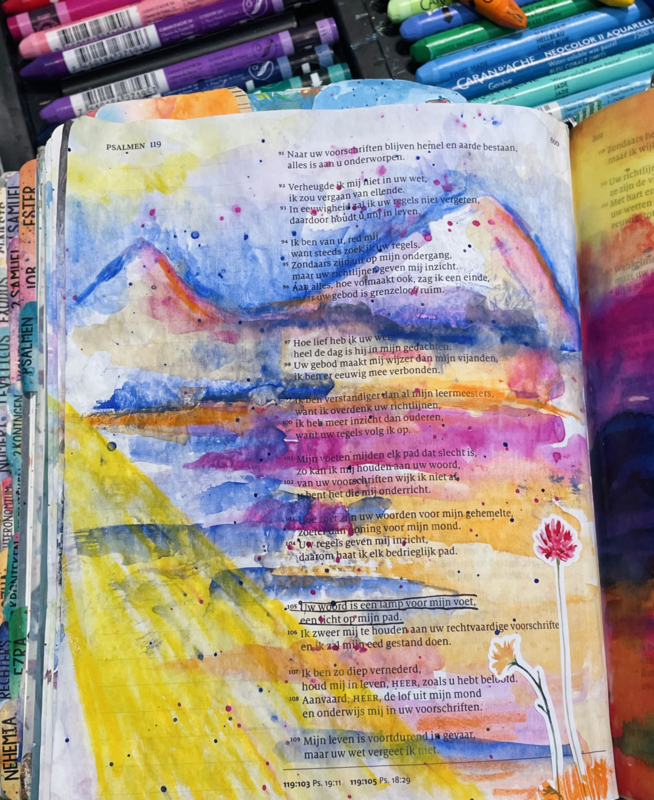 CARAN D'ACHE NEOCOLOR II AQUARELLE
PSALMEN 119
91 Naar uw voorschriften blijven hemel en aarde bestaan,
alles is aan u onderworpen.
92 Verheugde ik mij niet in uw wet,
ik zou vergaan van ellende.
93 In eeuwigheid zal ik uw regels niet vergeten,
daardoor houdt u mij in leven.
94 Ik ben van u, red mij,
want steeds zoek ik uw regels.
95 Zondaars zijn uit op mijn ondergang,
maar uw richtlijnen geven mij inzicht.
96 Aan alles, hoe volmaakt ook, zag ik een einde,
maar uw gebod is grenzeloos ruim.
97 Hoe lief heb ik uw wet
heel de dag is hij in mijn gedachten.
98 Uw gebod maakt mij wijzer dan mijn vijanden,
ik ben er eeuwig mee verbonden.
99 Ik ben verstandiger dan al mijn leermeesters,
want ik overdenk uw richtlijnen,
100 ik heb meer inzicht dan ouderen,
want uw regels volg ik op.
101 Mijn voeten mijden elk pad dat slecht is,
zo kan ik mij houden aan uw woord,
102 van uw voorschriften wijk ik niet af,
u bent het die mij onderricht.
103 Hoe zoet zijn uw woorden voor mijn gehemelte,
zoeter dan honing voor mijn mond.
104 Uw regels geven mij inzicht,
daarom haat ik elk bedrieglijk pad.
105 Uw woord is een lamp voor mijn voet,
een licht op mijn pad.
106 Ik zweer mij te houden aan uw rechtvaardige voorschrifte
en ik zal mijn eed gestand doen.
107 Ik ben zo diep vernederd,
houd mij in leven, HEER, zoals u hebt beloofd.
108 Aanvaard, HEER, de lof uit mijn mond
en onderwijs mij in uw voorschriften.
109 Mijn leven is voortdurend in gevaar,
maar uw wet vergeet ik niet.
119:103 Ps. 19:11 119:105 Ps. 18:29
ESTER
JOB
PSALMEN
EZRA
NEHEMIA